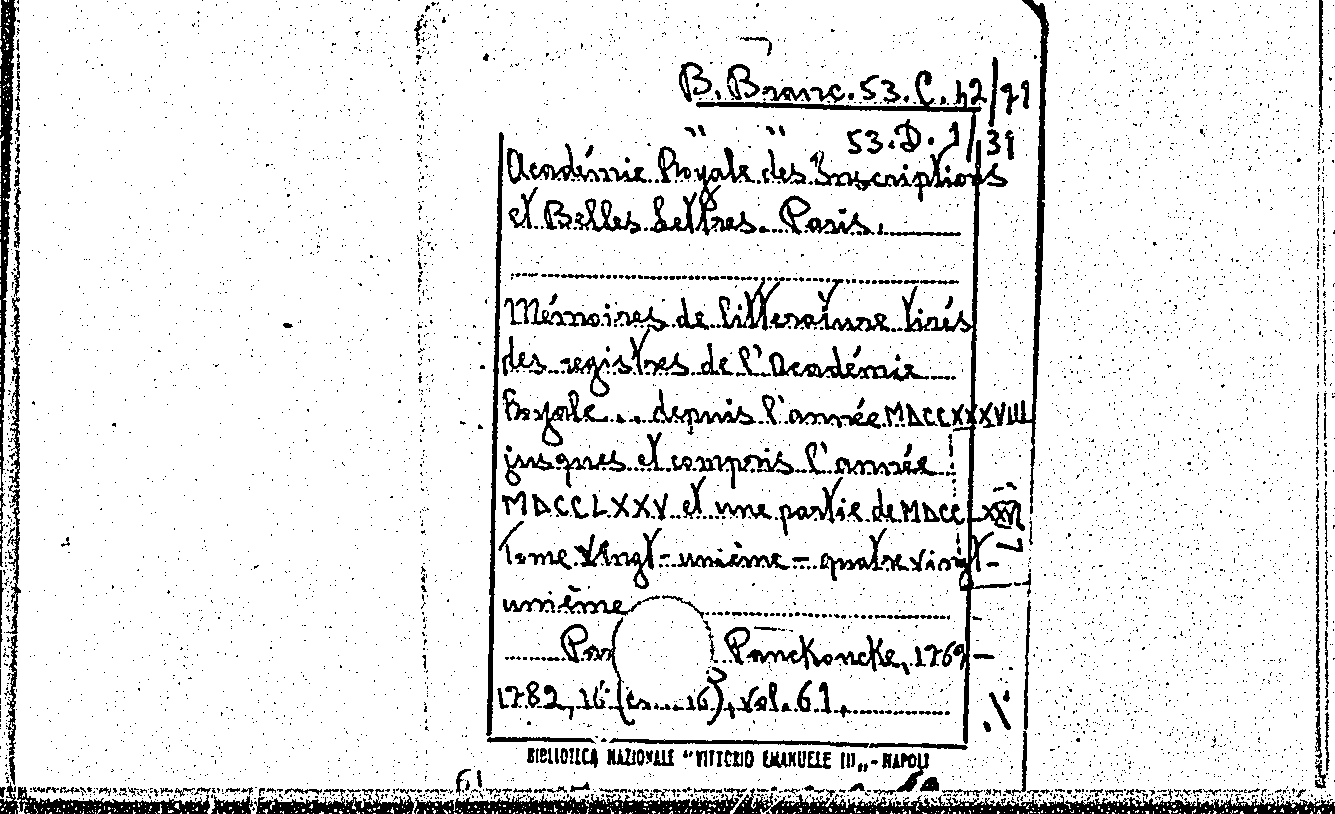 B. Branc. 53. C. 42/71
" " 53. D. 1/31
Académie Royale des Inscriptions
et Belles Lettres. Paris.
Mémoires de litterature tirés
des registres de l'Académie
Royale... depuis l'année MDCCXXXVIII
jusques et compris l'année
MDCCLXXV et une partie de MDCCLXXVI
Tome vingt-unième - quatre vingt-
unième
Panckoncke, 1769 -
1782, 16° (cs....16), vol. 61.
BIBLIOTECA NAZIONALE "VITTORIO EMANUELE III„ - NAPOLI
61